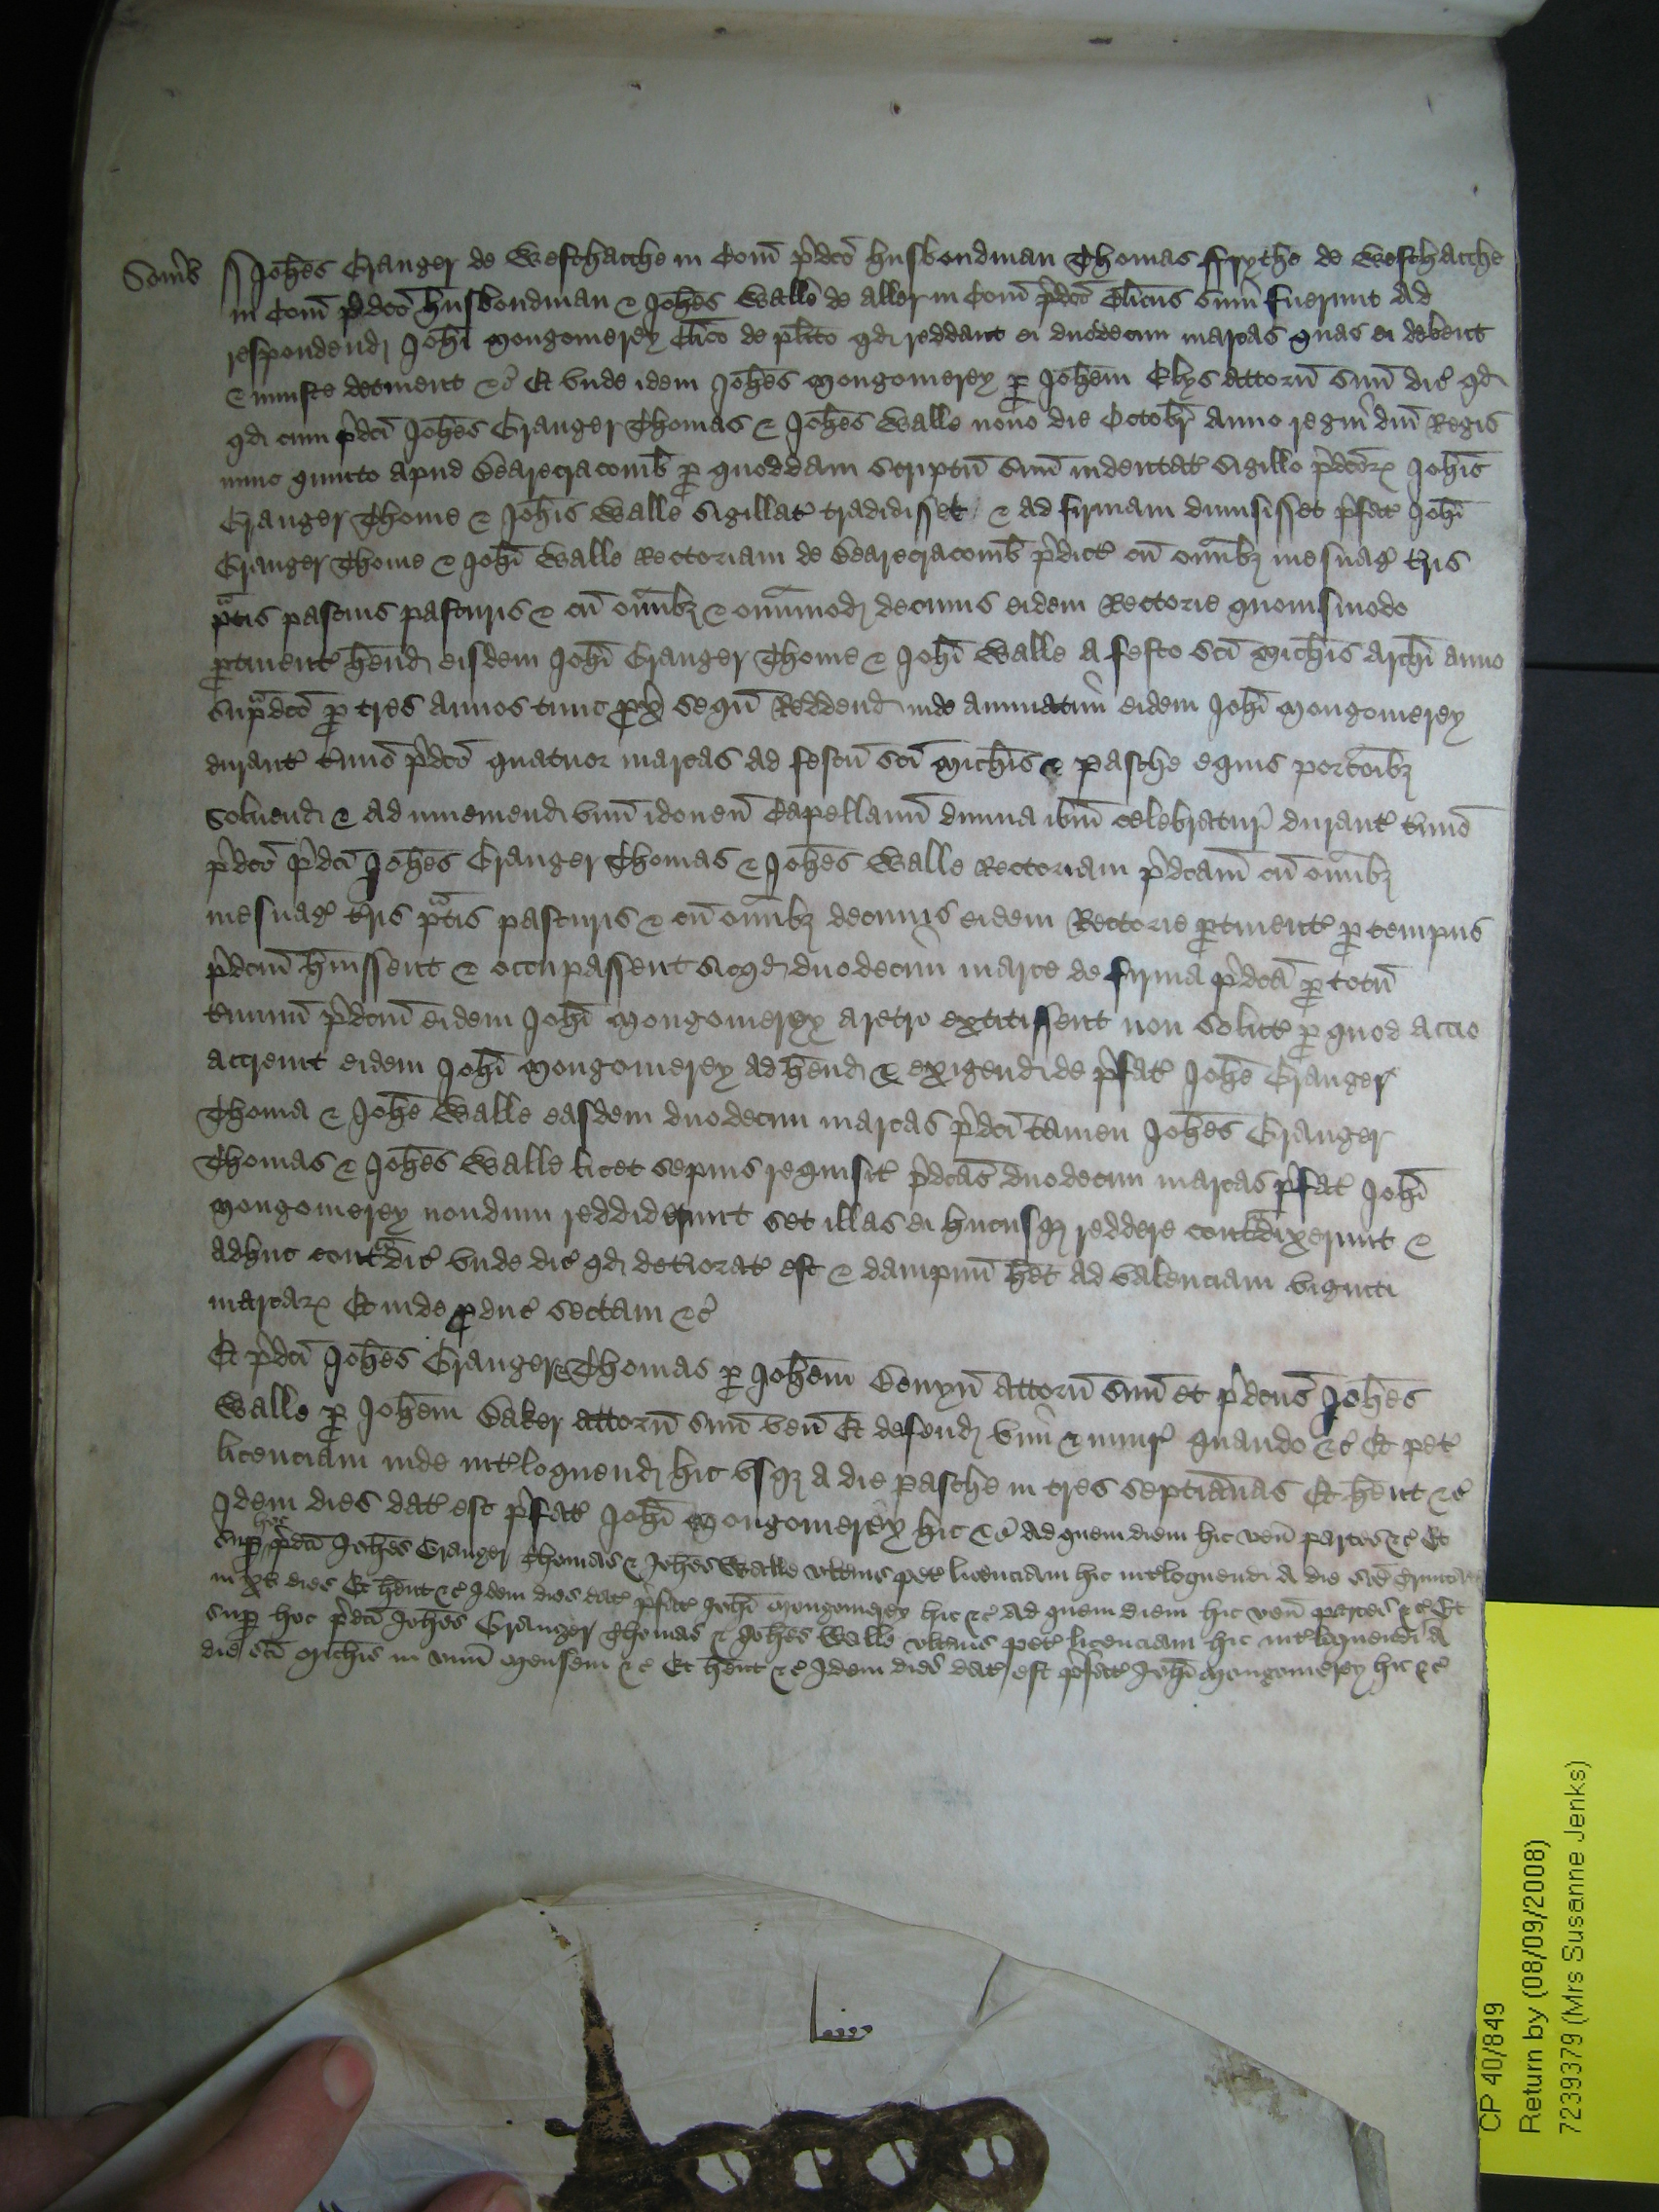 Som̃s Joh̃es Graunger de Westhacche in Com̃ p̃dc̃o husbondman Thomas ffrythe de Westhacche
in Com̃ p̃dc̃o husbondman & Joh̃es Walle de Aller in Com̃ p̃dc̃o Cl̃icus sum̃ fuerunt ad
respondend Joh̃i Mongomerey Cl̃ico de pl̃ito qd reddant ei duodecim marcas quas ei debent
& iniuste detinent &c̃ Et unde idem Joh̃es Mongomerey p Joh̃em Elys attorñ suũ dic̃ qd
qd cum p̃dc̃i Joh̃es Graunger Thomas & Joh̃es Walle nono die Octobr̃ anno regñ dñi Regis
nunc quinto apud p quoddam scriptũ suũ indentat̃ sigillo p̃dc̃oꝝ Joh̃is
Graunger Thome & Joh̃is Walle sigillat̃ tradidisset & ad firmam dimisisset p̃fat̃ Joh̃i
Graunger Thome & Joh̃i Walle Rectoriam de p̃dict̃ cũ om̃ibȝ mesuag̃ t̃ris
p̃tis pascuis pasturis & cũ om̃ibȝ & om̃imod decimis eidem Rectorie quouismodo
ptinent̃ h̃end eisdem Joh̃i Graunger Thome & Joh̃i Walle a festo sc̃i Mich̃is Arch̃i anno
sup̃dc̃o p tres annos tunc px̃ sequũ Reddend inde annuatim̃ eidem Joh̃i Mongomerey
durant̃ t̃mio p̃dc̃o quatuor marcas ad festũ sc̃i Mich̃is & Pasche equis porc̃oibȝ
soluend & ad inueniend vnũ idoneũ Capellanũ diuina ib̃m celebratur̃ durant̃ t̃mio
p̃dc̃o p̃dc̃i Joh̃es Graunger Thomas & Joh̃es Walle Rectoriam p̃dc̃am cũ om̃ibȝ
mesuag̃ t̃ris p̃tis pasturis & cũ om̃ibȝ decimis eidem Rectorie ptinent̃ p tempus
p̃dc̃m h̃uissent & occupassent sicqd duodecim̃ marce de firma p̃dc̃a p totũ
t̃minũ p̃dc̃m eidem Joh̃i Mongomerey aretro extitissent non solut̃ p quod accio
accreuit eidem Joh̃i Mongomerey ad h̃end & exigend de p̃fat̃ Joh̃e Graunger
Thoma & Joh̃e Walle easdem duodecim marcas p̃dc̃i tamen Joh̃es Graunger
Thomas & Joh̃es Walle licet sepius requisit̃ p̃dc̃as duodecim marcas p̃fat̃ Joh̃i
Mongomerey nondum reddiderunt set illas ei hucusqȝ reddere cont̃dixerunt &
adhuc cont̃dic̃ unde dic̃ qd det̃iorat̃ est & dampnũ h̃et ad valenciam viginti
marcaꝝ Et inde pduc̃ sectam &c̃
Et p̃dc̃i Joh̃es Graunger & Thomas p Joh̃em Bonyñ attorñ suũ et p̃dc̃us Joh̃es
Walle p Joh̃em Baker attorñ suũ veñ Et defend vim̃ & iniur̃ quando &c̃ Et pet̃
licenciam inde int̃loquend hic usqȝ a die Pasche in tres septĩanas Et h̃ent &c̃
Idem dies dat̃ est p̃fat̃ Joh̃i Mongomerey hic &c̃ Ad quem diem hic veñ partes &c̃ Et
sup hoc p̃dc̃i Joh̃es Graunger Thomas & Joh̃es Walle vlt̃ius pet̃ licenciam hic int̃loquendi a die sc̃e Trinitatis
in xv dies Et h̃ent &c̃ Idem dies dat̃ p̃fat̃ Joh̃i Mongomerey hic &c̃ Ad quem diem hic veñ partes &c̃ Et
sup hoc p̃dc̃i Joh̃es Graunger Thomas & Joh̃es Walle vlt̃ius pet̃ licenciam hic int̃loquendi a
die sc̃i Mich̃is in vnũ Mensem &c̃ Et h̃ent &c̃ Idem dies dat̃ est p̃fat̃ Joh̃i Mongomerey hic &c̃
CP 40/849
Return by (08/09/2008)
7239379 (Mrs Susanne Jenks)